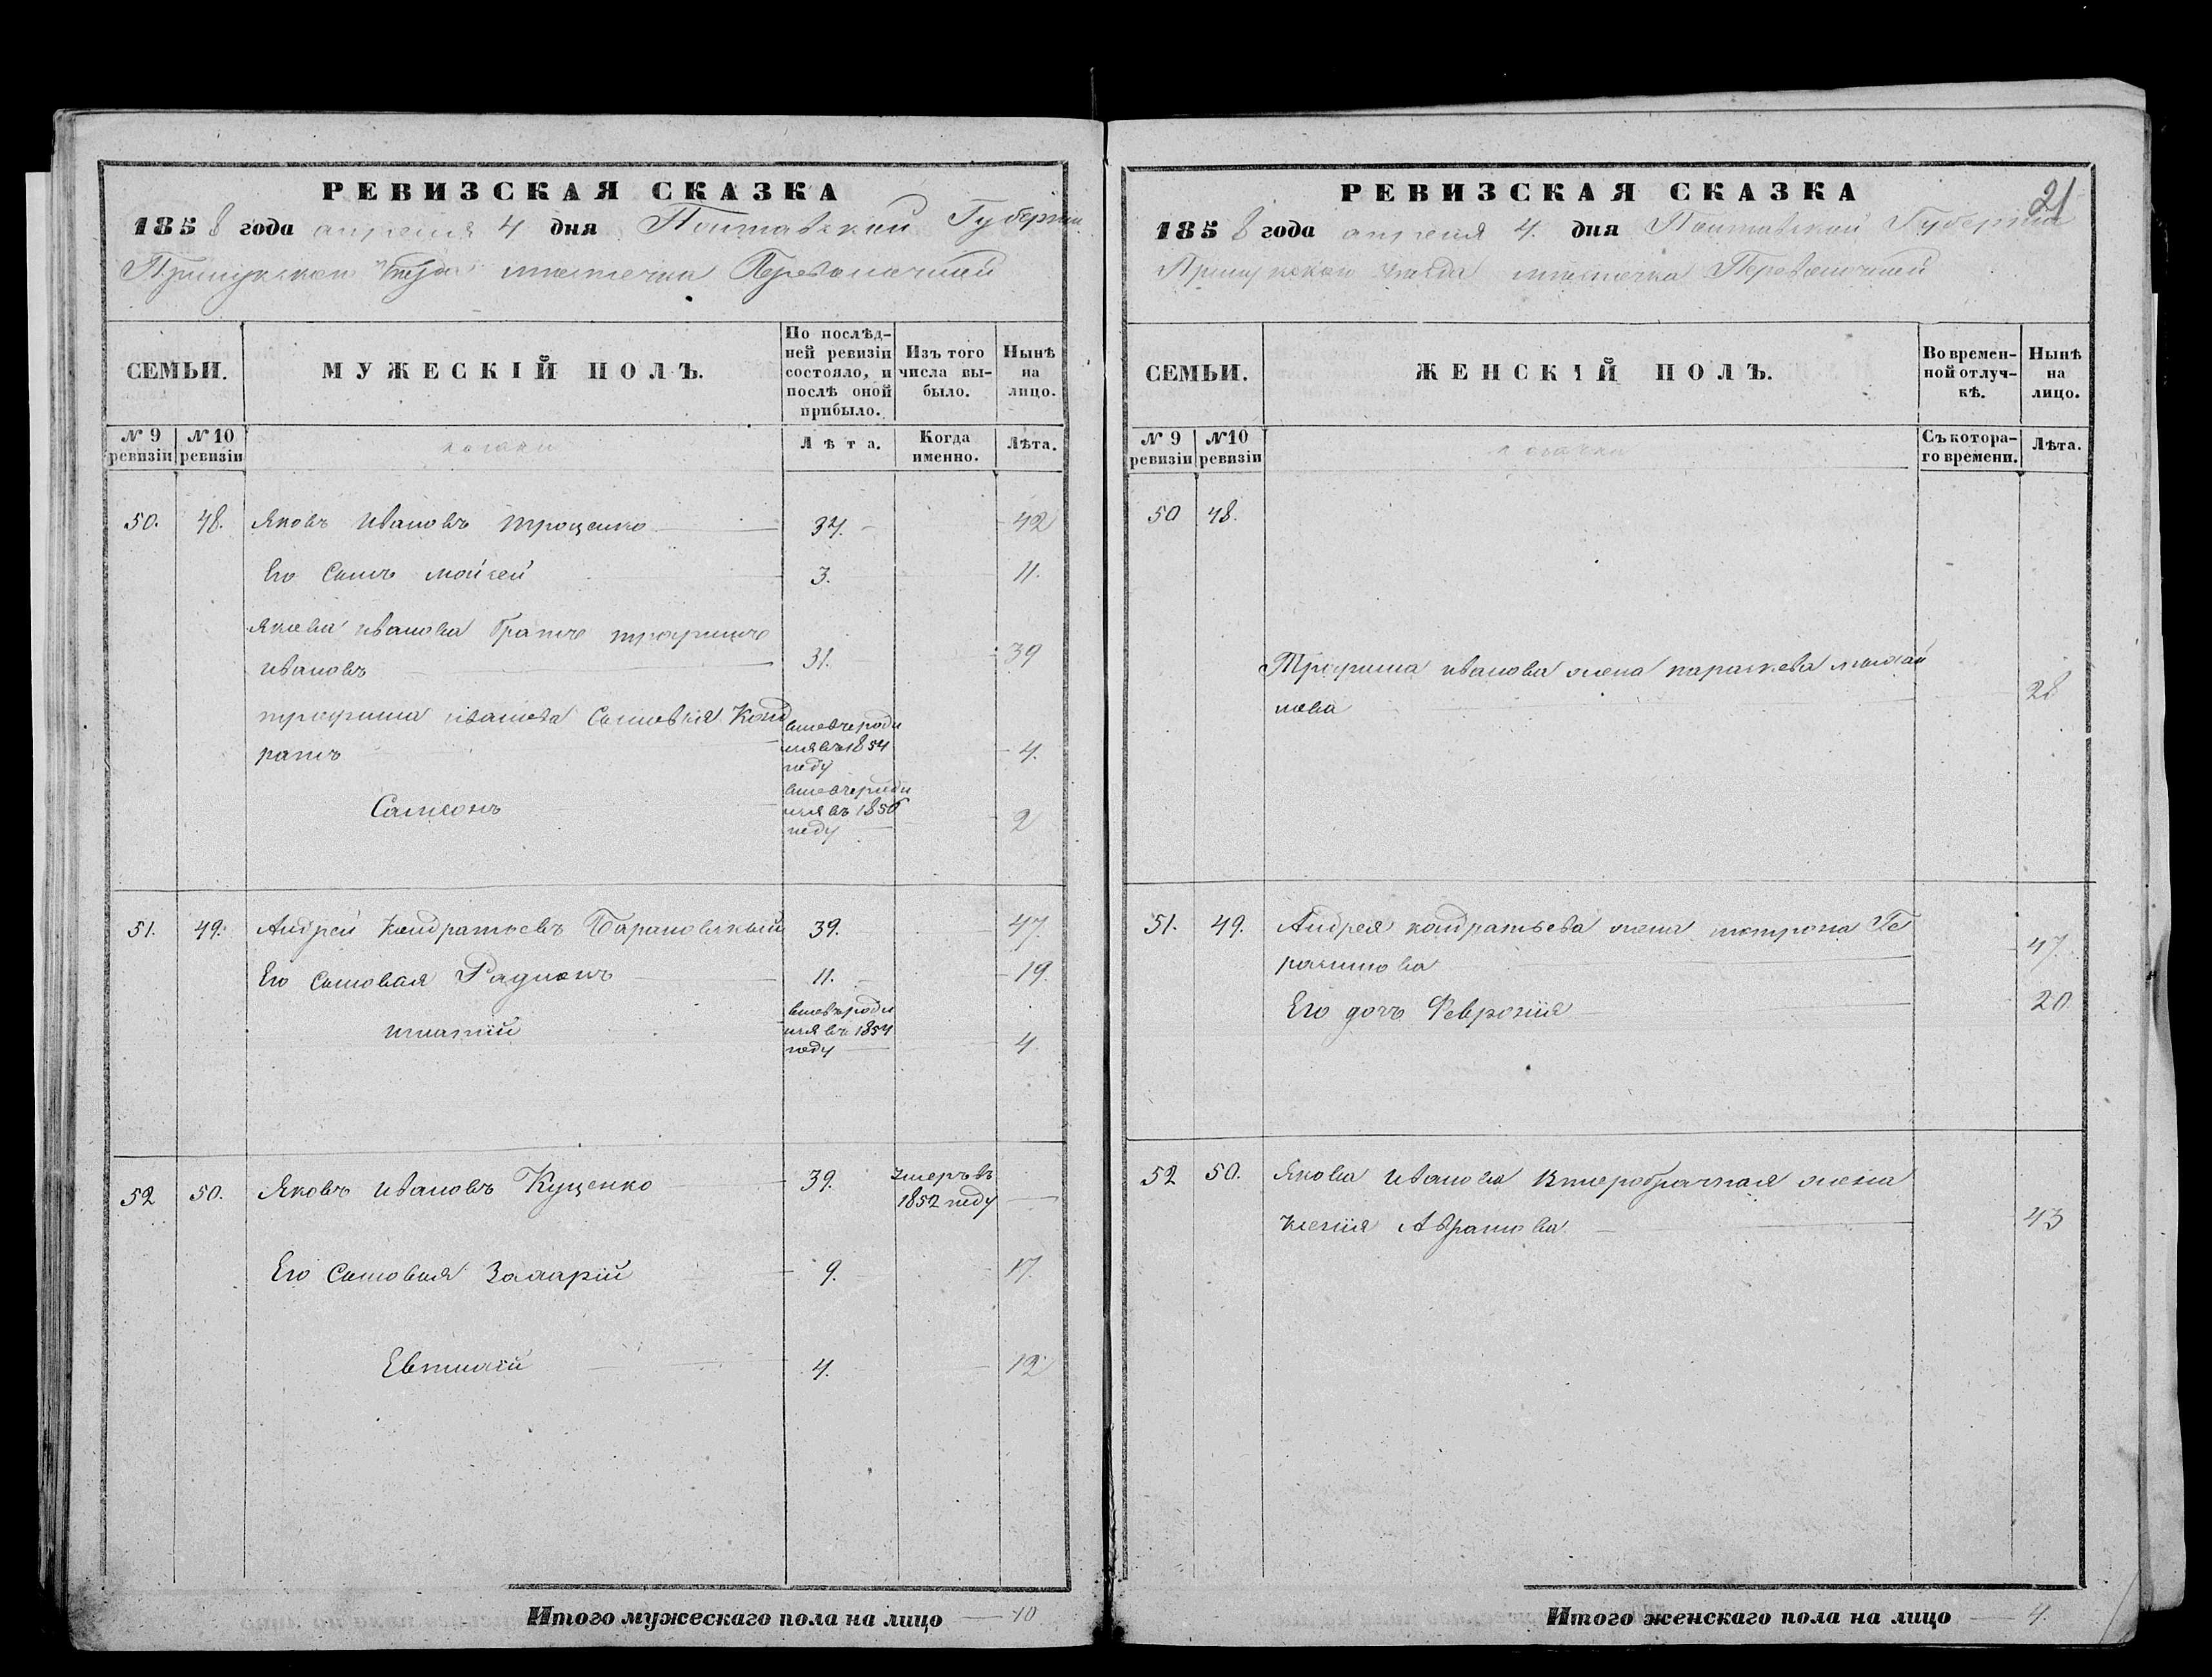 РЕВИЗСКАЯ СКАЗКА
1858 года апреля 4 дня Полтавской Губернии
Прилукскаго уезда местечка Переволочной
СЕМЬИ.
МУЖЕСКІЙ ПОЛЪ.
По послѣд-
ней ревизіи
состояло, и
послѣ оной
прибыло.
Изъ того
числа вы-
было.
Нынѣ
на
лицо.
№ 9
ревизіи
№ 10
ревизіи
казаки
Лѣта.
Когда
именно.
Лѣта.
50. 48. Яковъ Ивановъ Троценко 34. 42
Его Сынъ Мойсей 3. 11.
Якова Иванова братъ Трофимъ
Ивановъ 31. 39
Трофима Иванова Сыновья Конд
ратъ
вновь роди
лся въ 1854
году
4.
Самсонъ
вновь роди
лся въ 1856
году
2
51. 49. Андрей Кондратьевъ Барановский 39. 47.
Его Сыновья Радионъ 11. 19.
Игнатий
вновь роди
лся въ 1854
году
4
52 50. Яковъ Ивановъ Куценко 39.
Умеръ въ
1852 году
Его Сыновья Захарій 9. 17.
Евтихій 4. 12
Итого мужескаго пола на лицо 10
РЕВИЗСКАЯ СКАЗКА
21
1858 года апреля 4. дня Полтавской Губернии
Прилукскаго уезда местечка Переволочной
СЕМЬИ.
ЖЕНСКІЙ ПОЛЪ.
Во времен-
ной отлуч-
кѣ.
Нынѣ
на
лицо.
№ 9
ревизіи
№ 10
ревизіи
казачки
Съ котора-
го времени.
Лѣта.
50 48.
Трофима Иванова жена Параскева Михай
лова 28
51. 49. Андрея Кондратьева жена Мотрона Ге
расимова 47.
Его дочъ Феврония 20
52 50. Якова Иванова Второбрачная жена
Ксения Абрамова. 43
Итого женскаго пола на лицо 4.